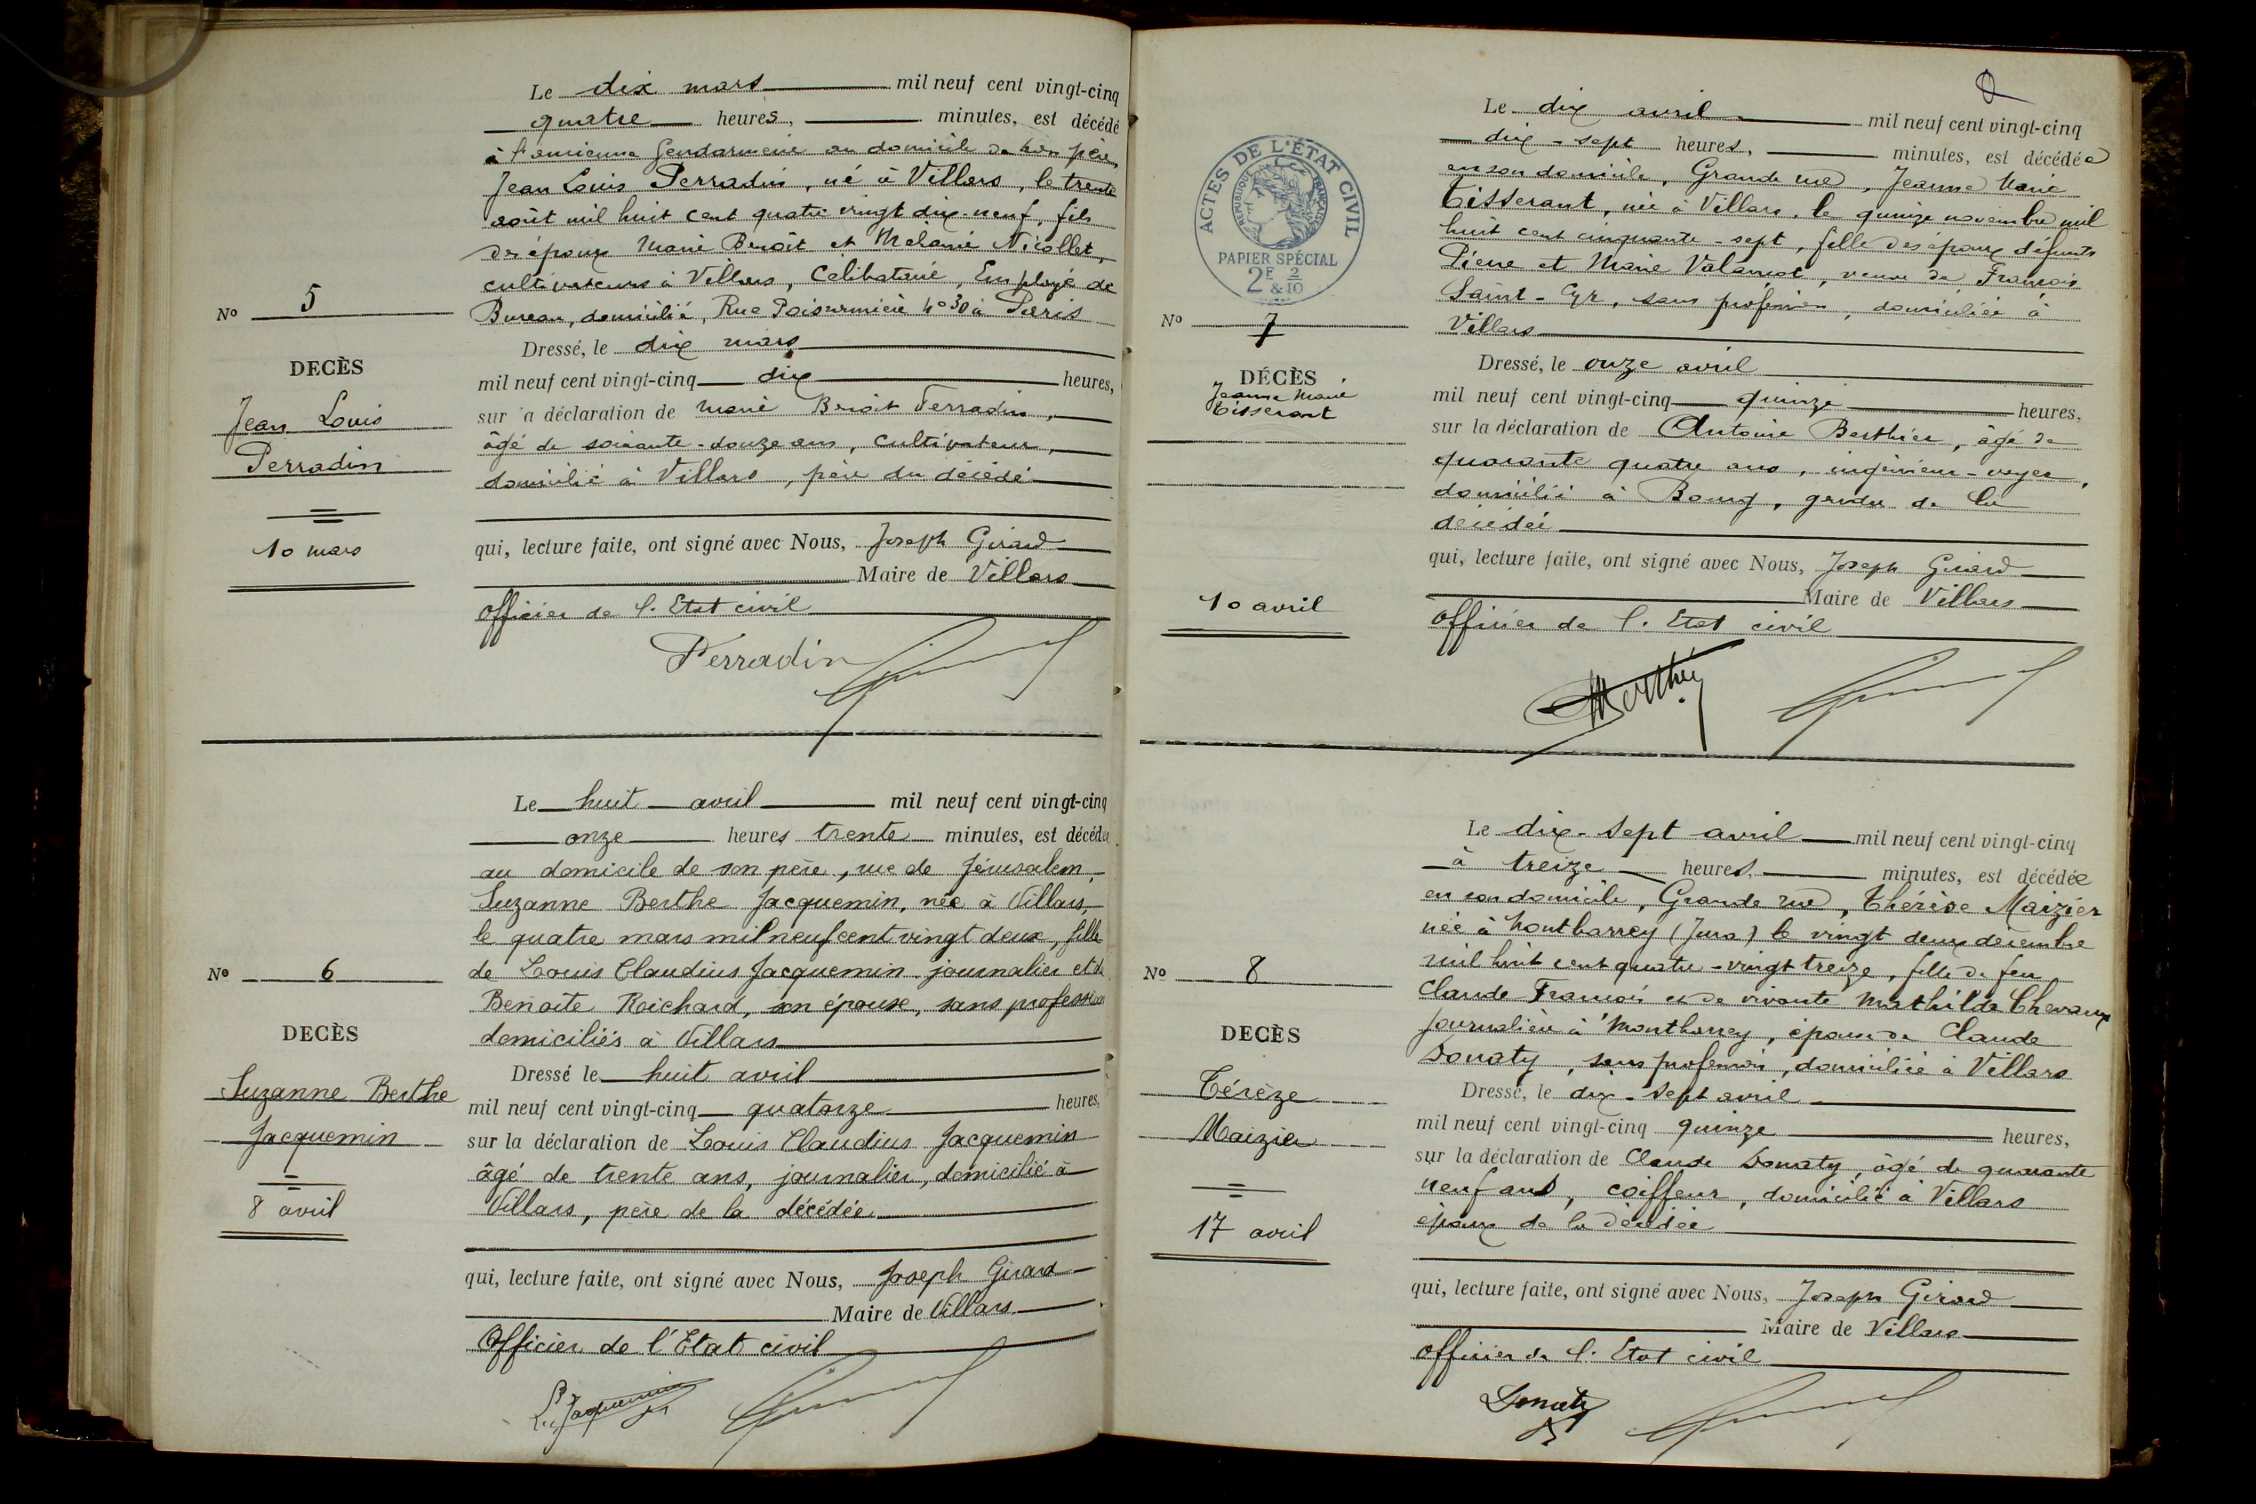 Le dix mars mil neuf cent vingt-cinq
quatre heures, minutes, est décédé
à l'ancienne Gendarmerie au domicile de son père,
Jean Louis Perradin, né à Villars, le trente
août mil huit cent quatre vingt dix-neuf, fils
des époux Marie Benoît et Mélanie Nicollet,
cultivateurs à Villars, Célibataire, Employé de
Bureau, domicilié, Rue Poissonnière No 30 à Paris
No 5
Dressé, le dix mars
DECÈS
mil neuf cent vingt-cinq dix heures,
Jean Louis
sur la déclaration de Marie Benoît Perradin,
Perradin
âgé de soixante-douze ans, cultivateur,
domicilié à Villars, père du décédé
10 mars
qui, lecture faite, ont signé avec Nous, Joseph Girard
Maire de Villars
Officier de l'Etat civil
Perradin
Le huit avril mil neuf cent vingt-cinq
onze heures trente minutes, est décédée
au domicile de son père, rue de Jérusalem,
Suzanne Berthe Jacquemin, née à Villars,
le quatre mars mil neuf cent vingt deux, fille
No 6
de Louis Claudius Jacquemin journalier et de
Benoite Roichard, son épouse, sans profession
domiciliés à Villars
DECÈS
Dressé le huit avril
Suzanne Berthe
mil neuf cent vingt-cinq quatorze heures,
Jacquemin
sur la déclaration de Louis Claudius Jacquemin
âgé de trente ans, journalier, domicilié à
8 avril
Villars, père de la décédée
qui, lecture faite, ont signé avec Nous, Joseph Girard
Maire de Villars
Officier de l'Etat civil
Jacquemin
ACTES DE L'ÉTAT CIVIL
RÉPUBLIQUE FRANÇAISE
PAPIER SPÉCIAL
2E & 2/10
Le dix avril mil neuf cent vingt-cinq
dix-sept heures, minutes, est décédée
en son domicile, Grande rue, Jeanne Marie
Tisserant, née à Villars, le quinze novembre mil
huit cent cinquante-sept, fille des époux défunts
Pierre et Marie Valansot, veuve de François
Saint-Cyr, sans profession, domiciliée à
No 7
Villars
Dressé, le onze avril
DÉCÈS
Jeanne Marie
Tisserant
mil neuf cent vingt-cinq quinze heures,
sur la déclaration de Antoine Berthier, âgé de
quarante quatre ans, ingénieur-voyer,
domicilié à Bourg, gendre de la
décédée
qui, lecture faite, ont signé avec Nous, Joseph Girard
10 avril
Maire de Villars
Officier de l'Etat civil
Le dix-sept avril mil neuf cent vingt-cinq
à treize heures, minutes, est décédée
en son domicile, Grande rue, Thérèse Maizier
née à Montbarrey (Jura) le vingt deux décembre
mil huit cent quatre-vingt treize, fille de feu
No 8
Claude François et de vivante Mathilde Chevaux
journalière à Montbarrey, épouse de Claude
Donaty, sans profession, domiciliée à Villars
DECÈS
Dressé, le dix-sept avril
Térèze
mil neuf cent vingt-cinq quinze heures,
Maizier
sur la déclaration de Claude Donaty, âgé de quarante
neuf ans, coiffeur, domicilié à Villars
17 avril
époux de la décédée
qui, lecture faite, ont signé avec Nous, Joseph Girard
Maire de Villars
Officier de l'Etat civil
Donaty